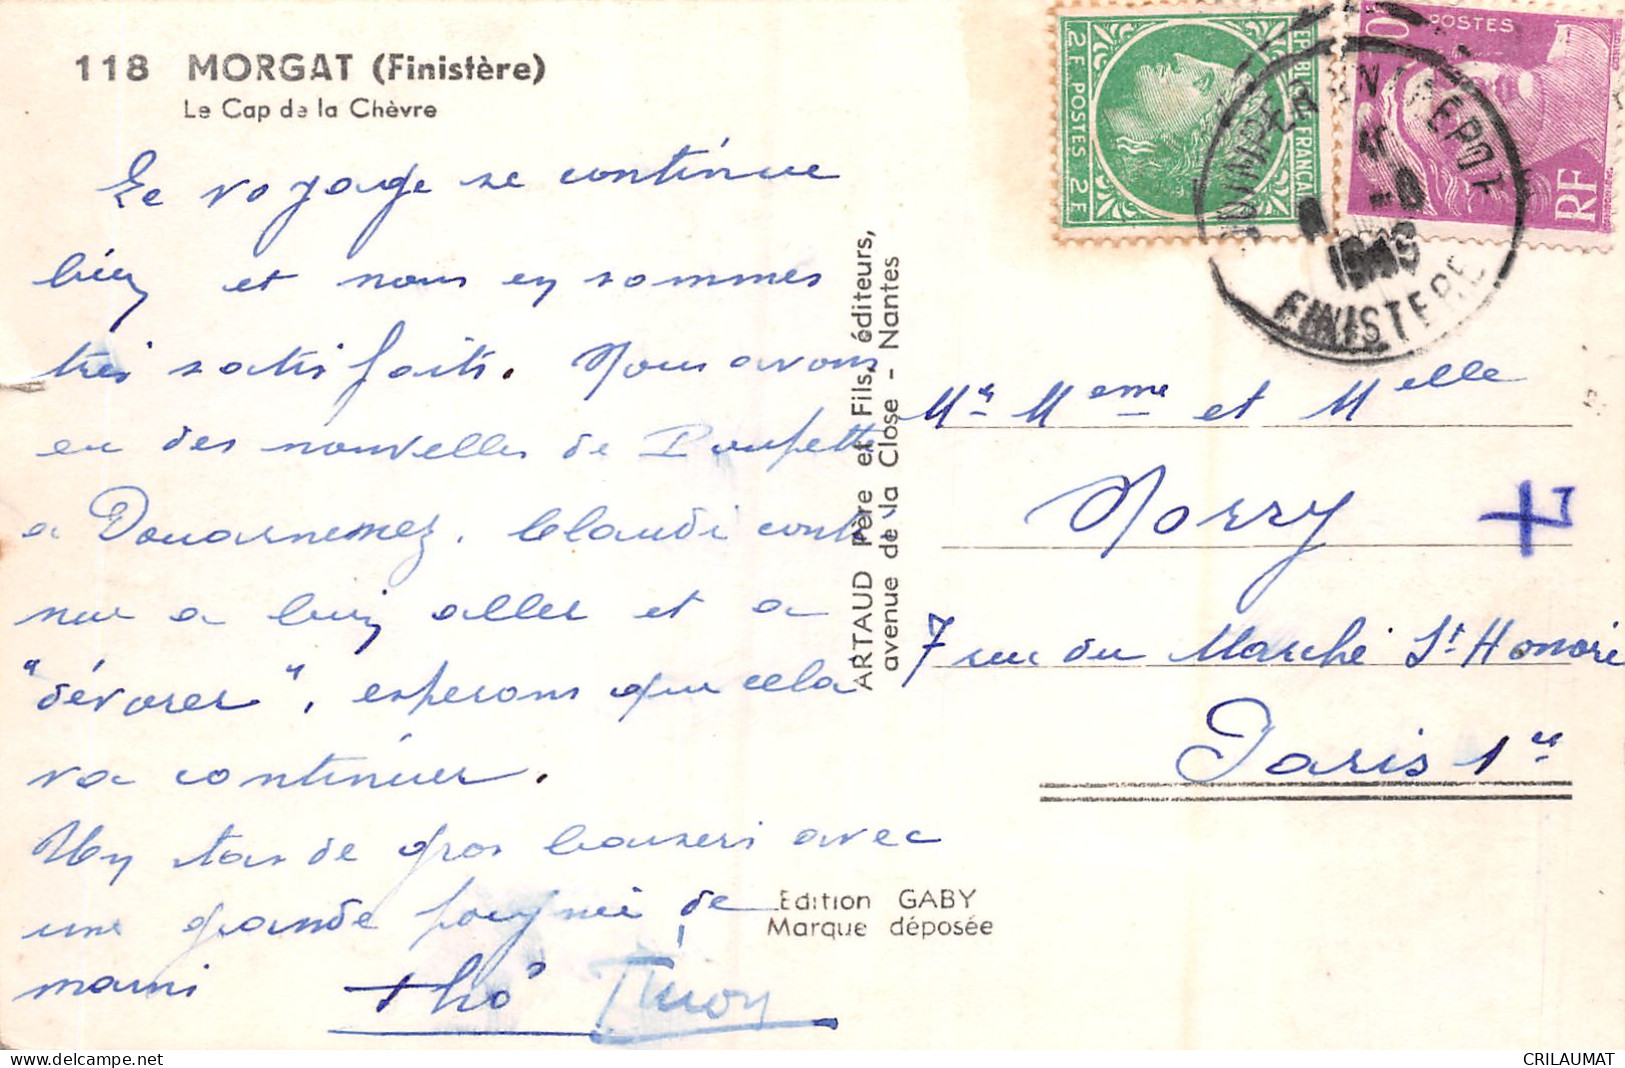 118 MORGAT (Finistère)
Le Cap de la Chèvre
Le voyage se continue
bien et nous en sommes
très satisfaits. Nous avons
eu des nouvelles de Poupette
a Douarnenez. Claudi conti
nue a bien aller et a
"dévorer", esperons que cela
va continuer.
Un tas de gros baisers avec
une grande poignée de
main
ARTAUD Père et Fils, éditeurs,
avenue de la Close - Nantes
Edition GABY
Marque déposée
RÉPUBLIQUE FRANÇAISE
2F POSTES 2F
POSTES
RF
QUIMPER ENTREPOT
FINISTERE
Mr Meme et Melle
Norry
7 rue du Marché St Honoré
Paris 1er
www.delcampe.net
CRILAUMAT